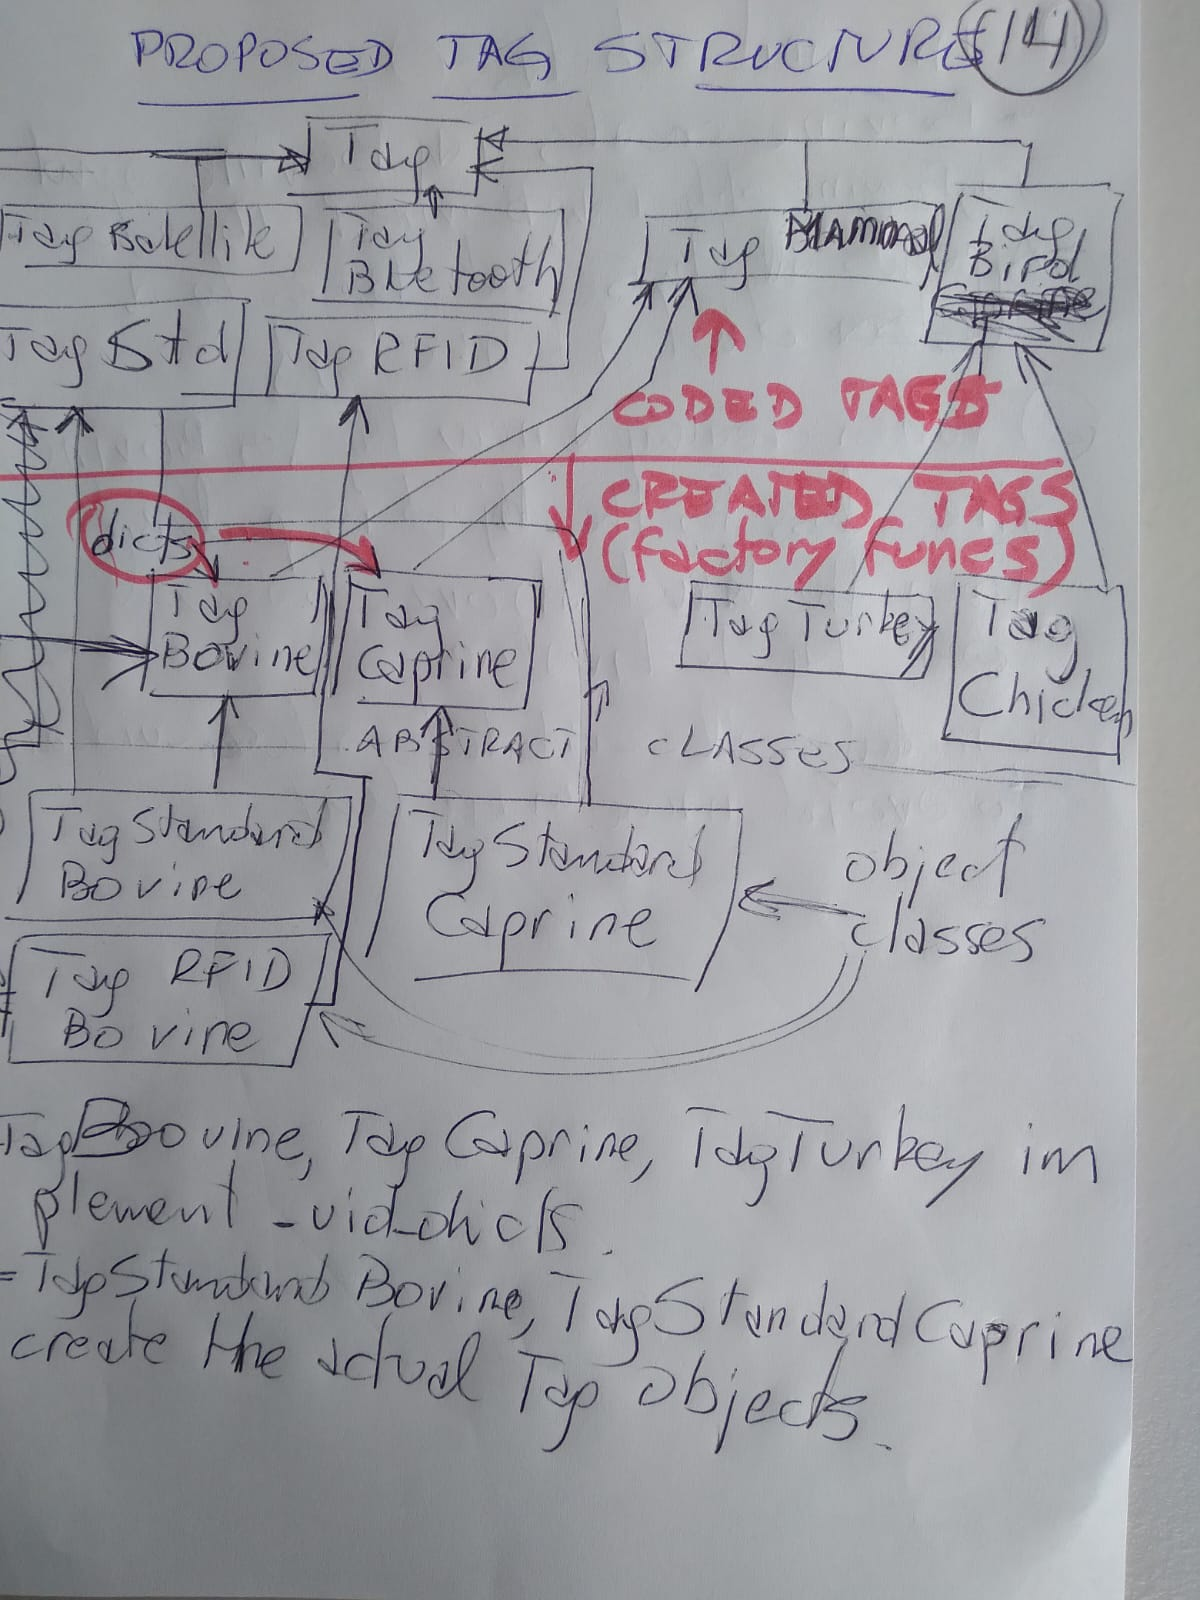 PROPOSED TAG STRUCTURE 14
Tag
Tag Satellite
Tag
Bluetooth
Tag Mammal
Tag
Bird
Tag Std
Tag RFID
CODED TAGS
CREATED TAGS
(factory funcs)
dicts
Tag
Bovine
Tag
Caprine
Tag Turkey
Tag
Chicken
ABSTRACT CLASSES
Tag Standard
Bovine
Tag Standard
Caprine
object
classes
Tag RFID
Bovine
Tag Bovine, Tag Caprine, TagTurkey im
plement _uid_dicts.
= TagStandard Bovine, TagStandardCaprine
create the actual Tag objects.